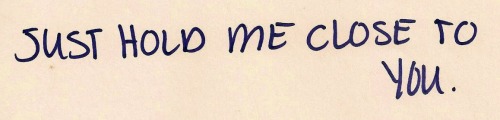 JUST HOLD ME CLOSE TO
YOU.